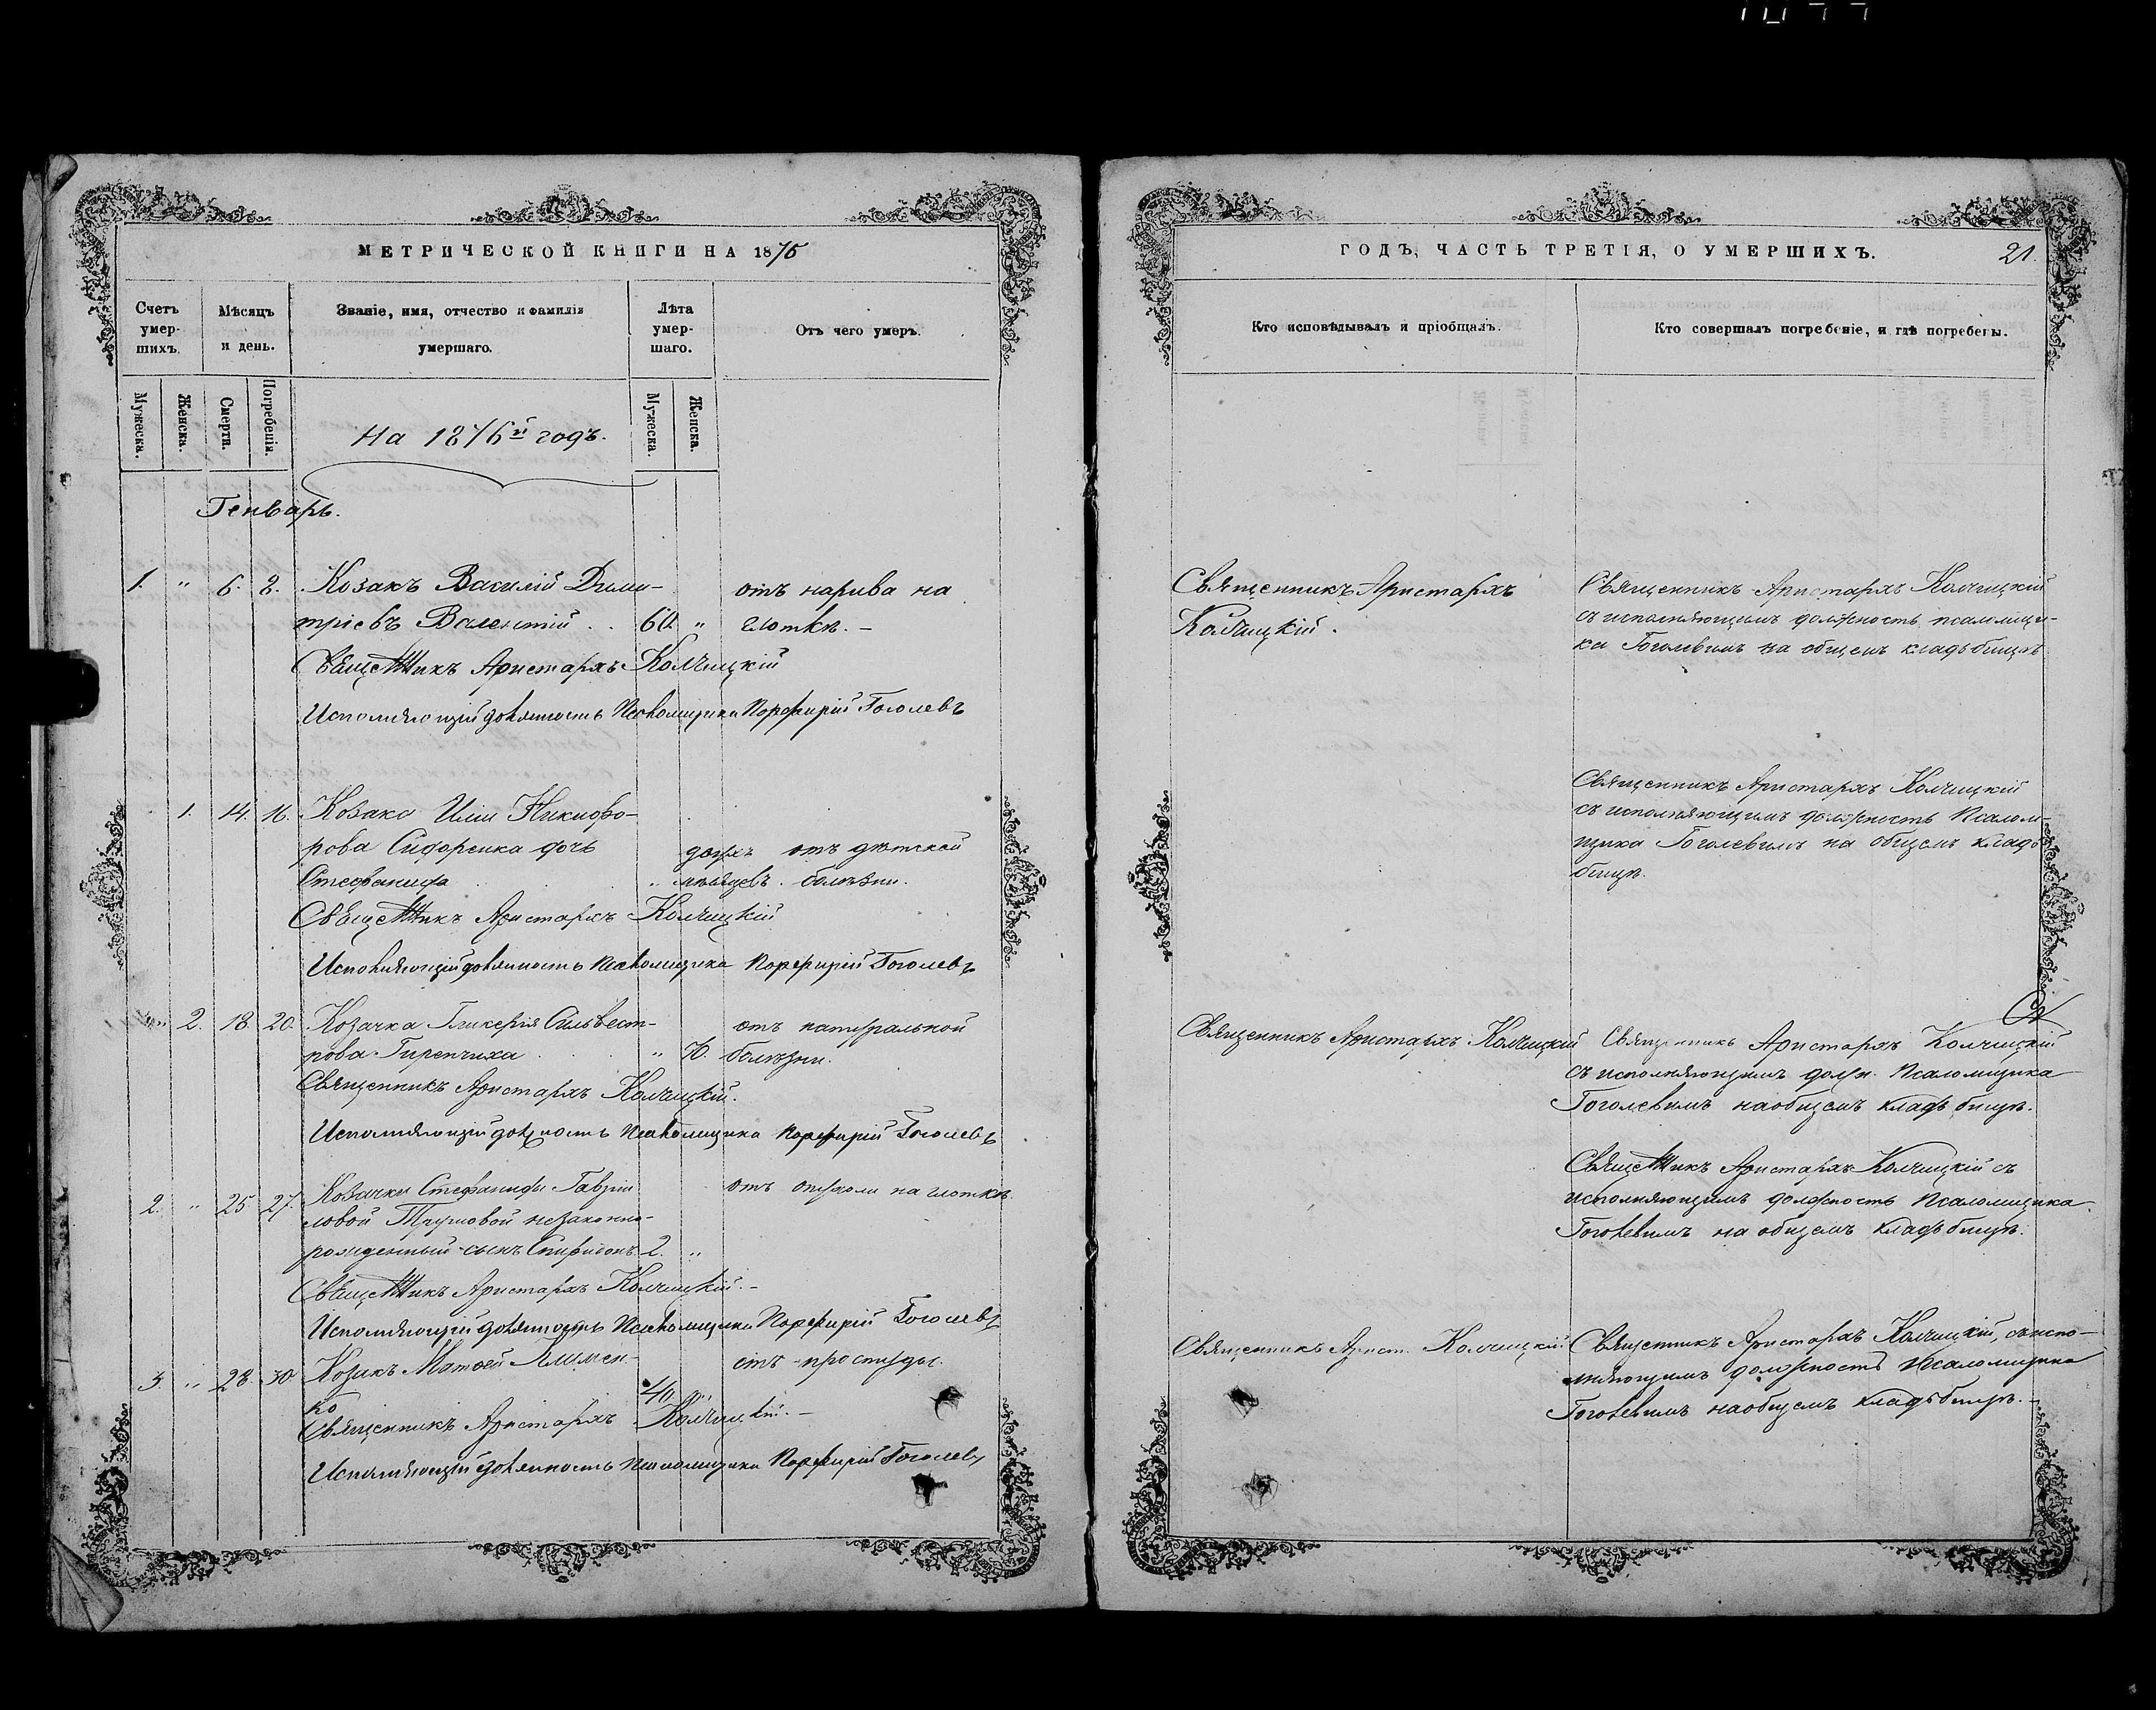 МЕТРИЧЕСКОЙ КНИГИ НА 1876
Счетъ умер-шихъ.
Мѣсяцъ и день.
Званіе, имя, отчество и фамилія умершаго.
Лѣта умер-шаго.
Отъ чего умеръ.
Мужеска.
Женска.
Смерти.
Погребенія.
На 1876й годъ.
Мужеска.
Женска.
Генварь.
1. " 6. 8. Козакъ Василій Дими-
тріевъ Валентій . . 60. "
отъ нарива на
глоткѣ. –
Священникъ Аристархъ Колчицкій
Исполняющій должность Псаломщика Порфирій Гоголевъ
1. 14. 16. Козака Иліи Никифо-
рова Сидоренка дочь
Стефанида "
двухъ
мѣсяцевъ.
отъ дѣтской
болѣзни.
Священникъ Аристархъ Колчицкій
Исполняющій должность Псаломщика Порфирій Гоголевъ
" 2. 18. 20. Козачка Гликерія Сильвест-
рова " 70.
отъ натуральной
болѣзни.
Священникъ Аристархъ Колчицкій.
Исполняющій должность Псаломщика Порфирій Гоголевъ
2. " 25. 27. Козачки Стефаниды Гаврии
ловой незаконно-
рожденный сынъ Спиридонъ. 2. "
отъ на глоткѣ.
Священникъ Аристархъ Колчицкій. –
Исполняющій должность Псаломщика Порфирій Гоголевъ
3. " 28. 30. Козакъ Матѳей
ко 40. "
отъ простуды.
Священникъ Аристархъ Колчицкій. –
Исполняющій должность Псаломщика Порфирій Гоголевъ
ГОДЪ, ЧАСТЬ ТРЕТІЯ, О УМЕРШИХЪ.
21.
Кто исповѣдывалъ и пріобщалъ.
Кто совершалъ погребеніе, и гдѣ погребены.
Священникъ Аристархъ
Колчицкій.
Священникъ Аристархъ Колчицкій
съ исполняющимъ должность псаломщи-
ка Гоголевимъ на общемъ кладьбищѣ
Священникъ Аристархъ Колчицкій
съ исполняющимъ должность Псалом-
щика Гоголевимъ на общемъ кладь
бищѣ.
Священникъ Аристархъ Колчицкій
Священникъ Аристархъ Колчицкій
съ исполняющимъ долж. Псаломщика
Гоголевимъ на общемъ кладьбищѣ.
Священникъ Аристархъ Колчицкій съ
исполняющимъ должность Псаломщика
Гоголевимъ на общемъ кладьбищѣ.
Священникъ Арист. Колчицкій
Священникъ Аристархъ Колчицкій, съ испо-
лняющимъ должность Псаломщика
Гоголевимъ на общемъ кладьбищѣ. –